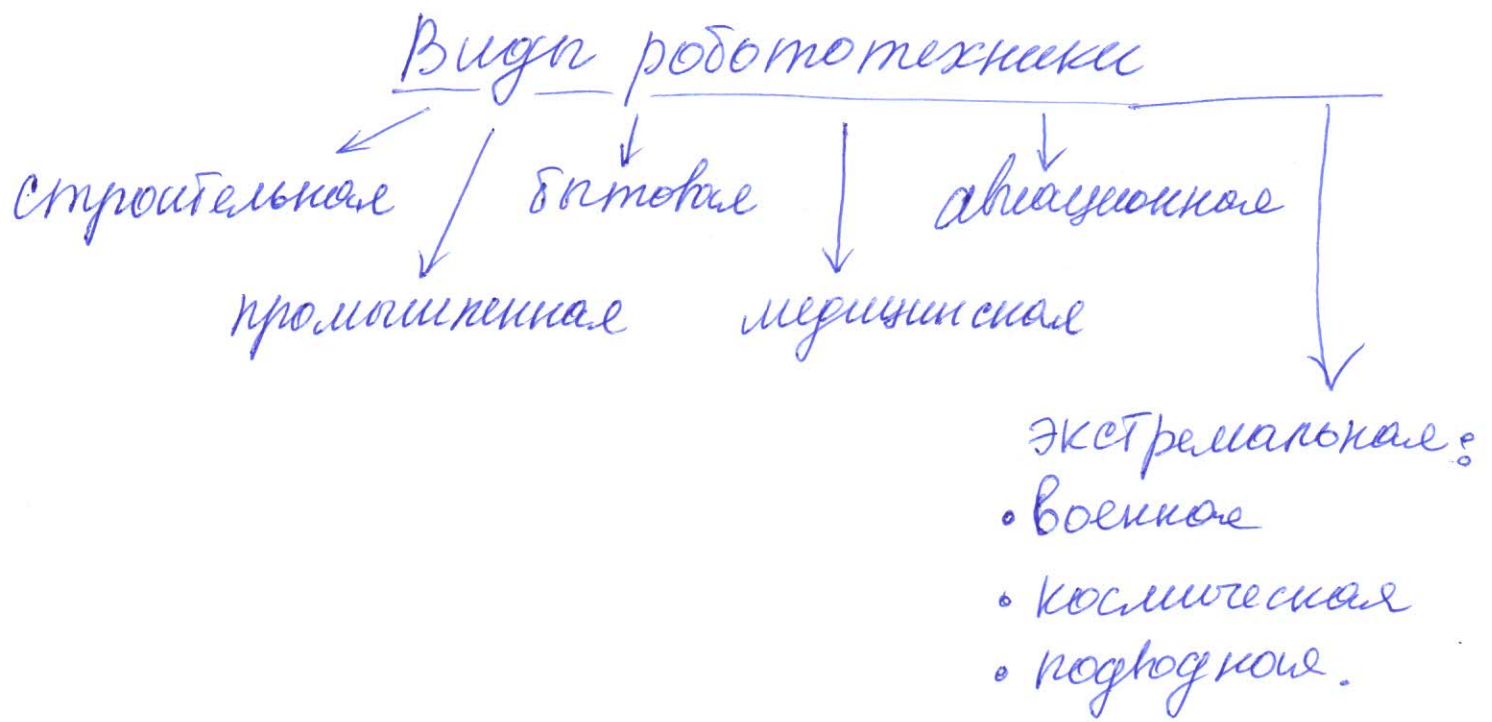 Виды робототехники
строительная бытовая авиационная
промышленная медицинская
экстремальная:
• военная
• космическая
• подводная.